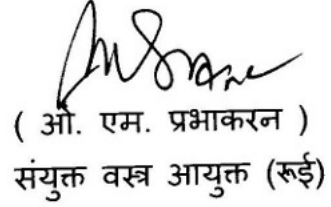 ( ओ. एम. प्रभाकरन )
संयुक्त वस्त्र आयुक्त (रूई)